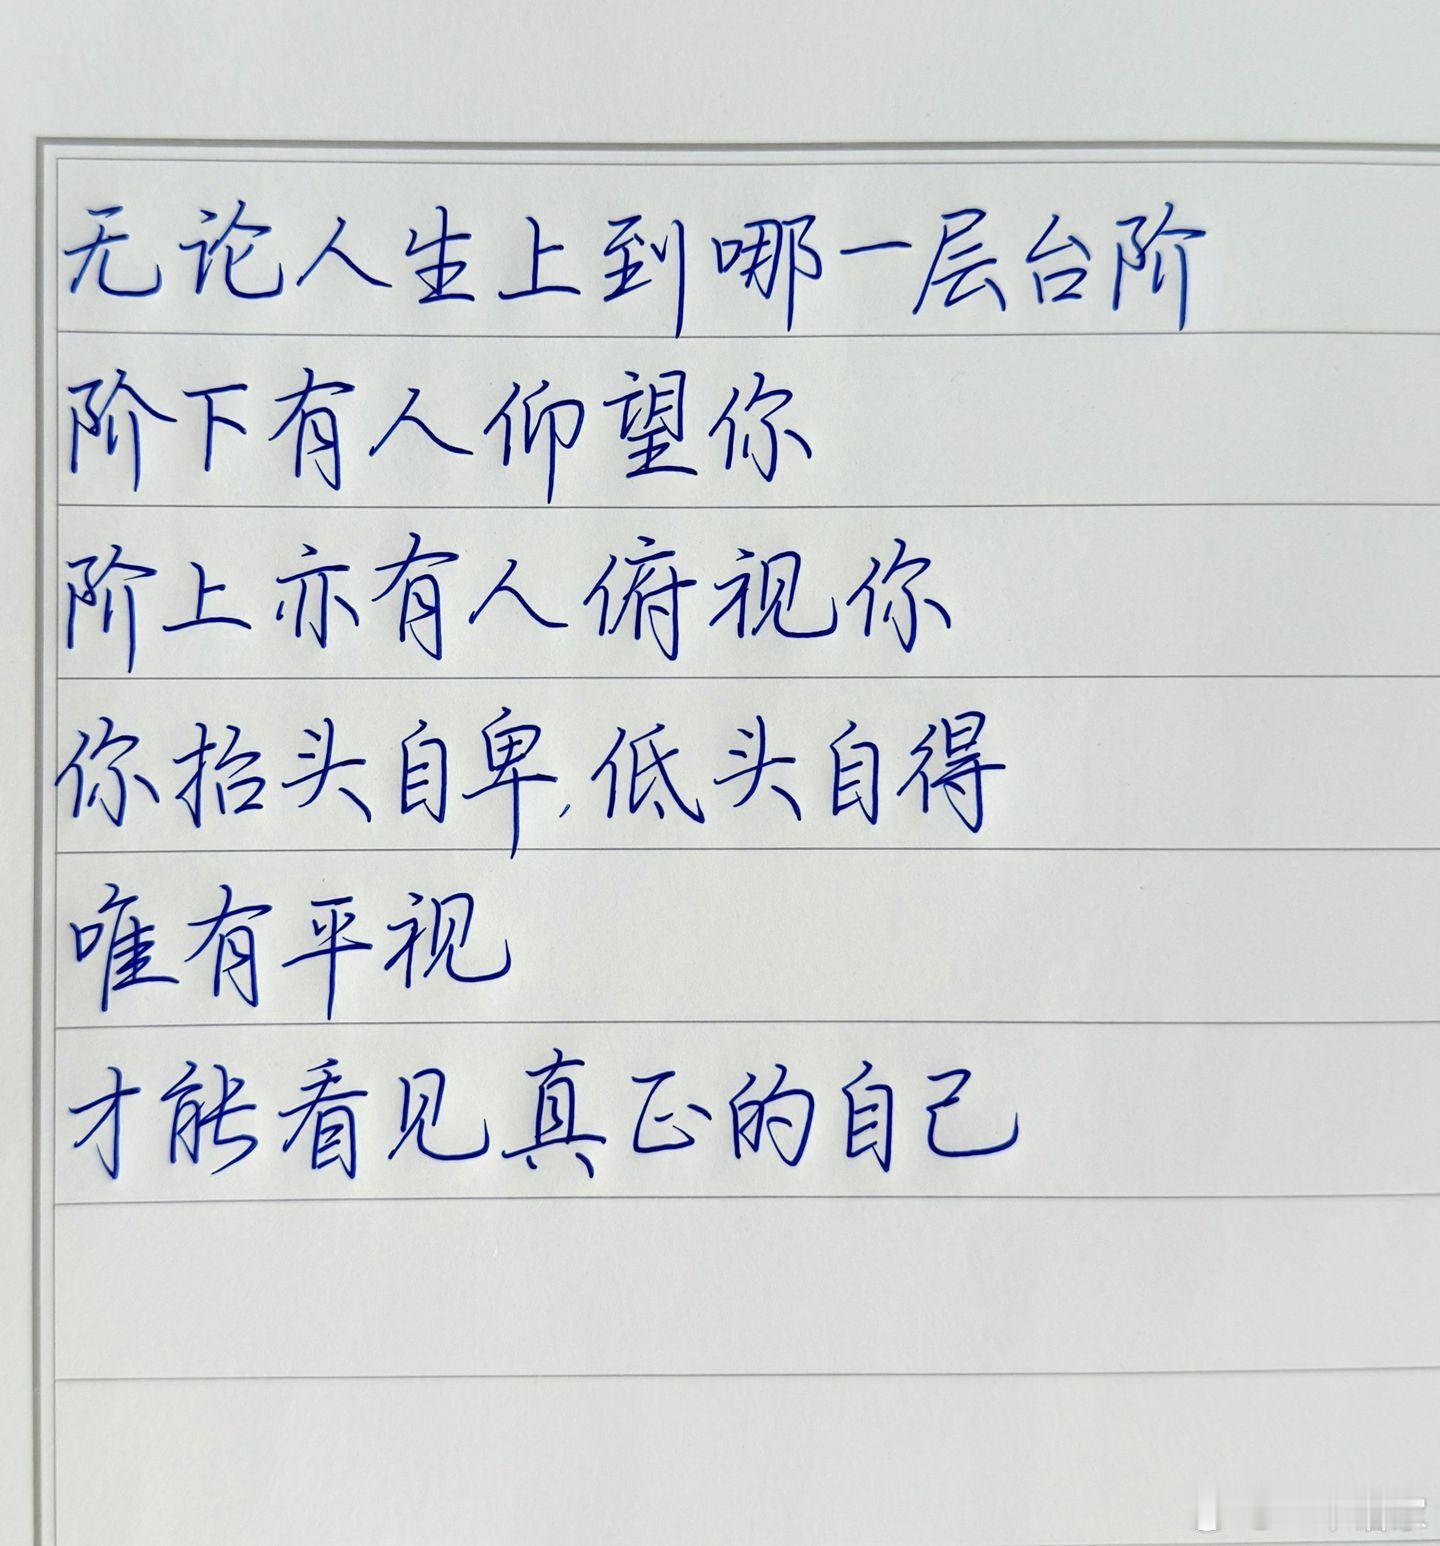 无论人生上到哪一层台阶
阶下有人仰望你
阶上亦有人俯视你
你抬头自卑,低头自得
唯有平视
才能看见真正的自己